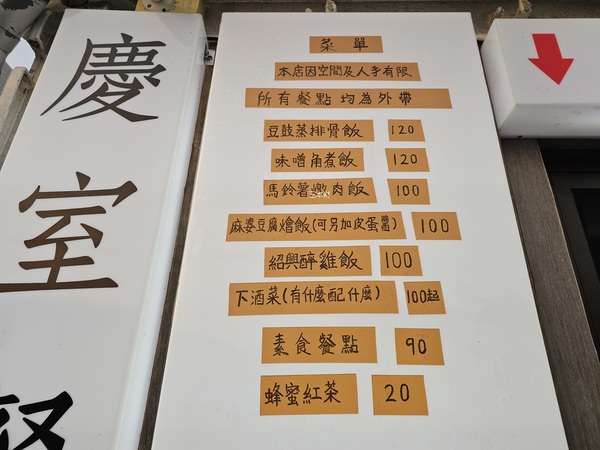 慶室
菜單
本店因空間及人手有限
所有餐點 均為外帶
豆鼓蒸排骨飯 120
味噌角煮飯 120
馬鈴薯燉肉飯 100
麻婆豆腐燴飯(可另加皮蛋醬) 100
紹興醉雞飯 100
下酒菜(有什麼配什麼) 100起
素食餐點 90
蜂蜜紅茶 20